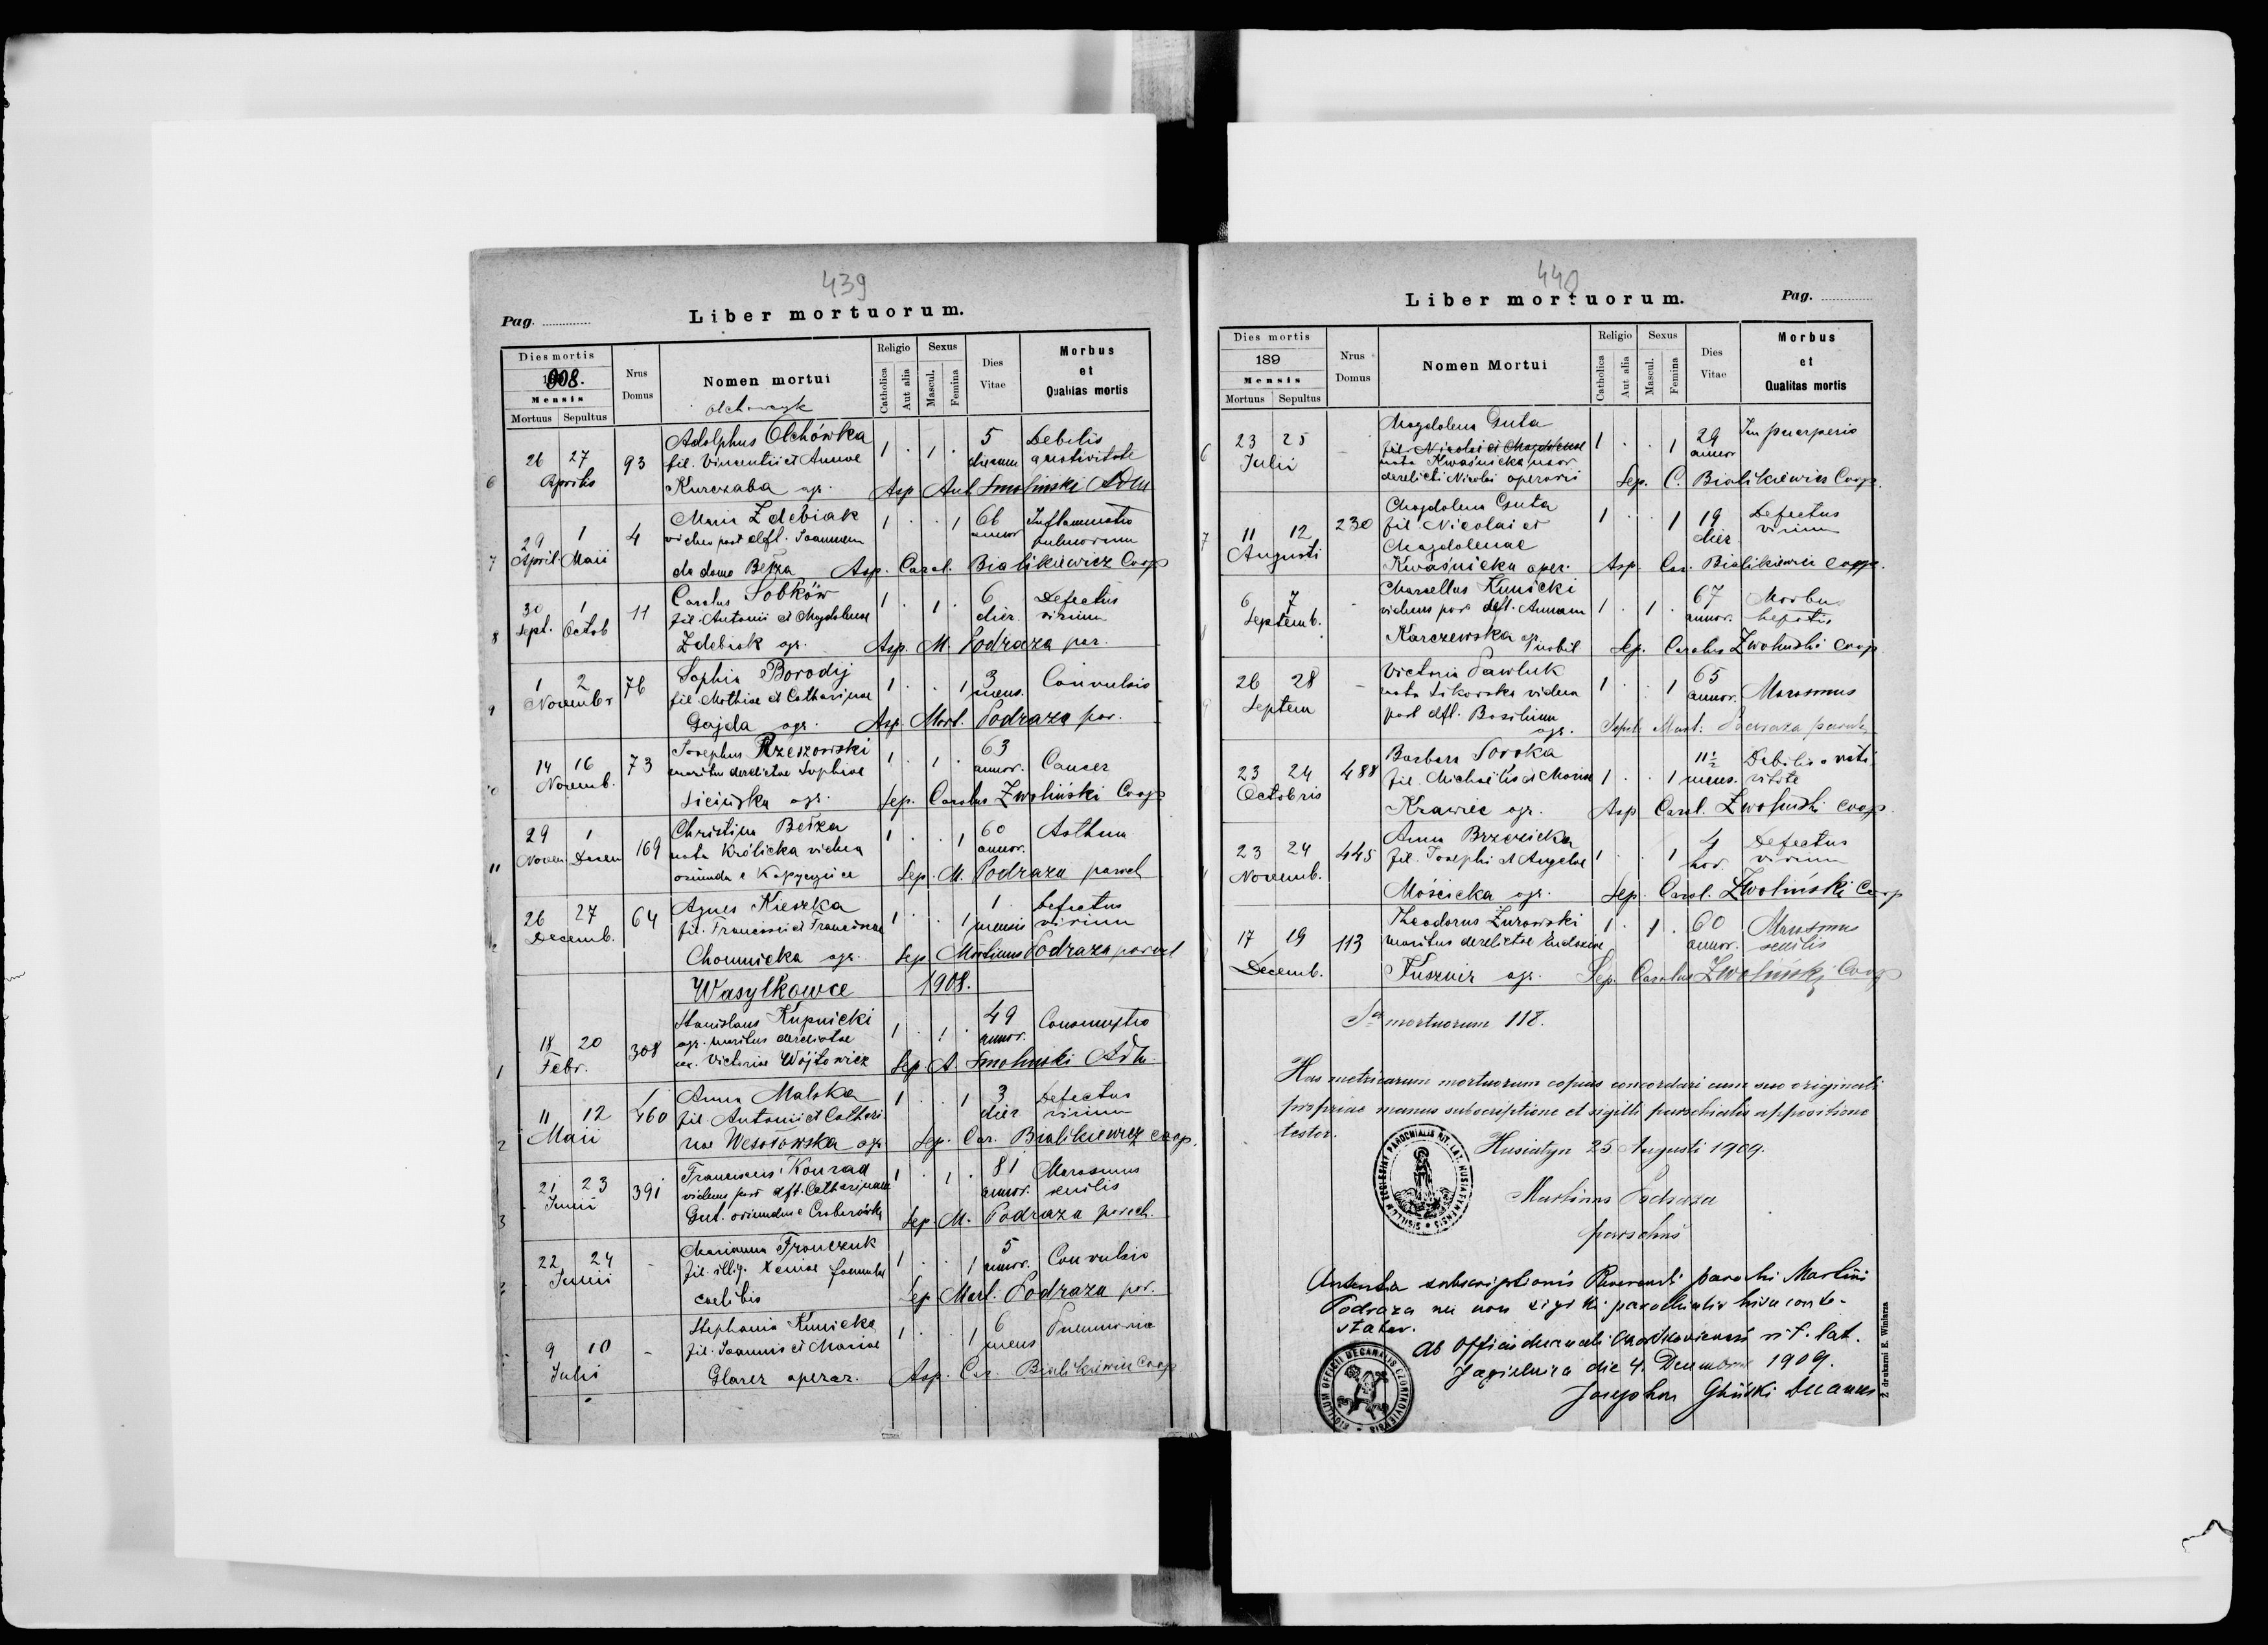 439
Pag. ............
Liber mortuorum.
Dies mortis
1908.
Mensis
Mortuus Sepultus
Nrus Domus
Nomen mortui
Religio
Catholica
Aut alia
Sexus
Mascul.
Femina
Dies Vitae
Morbus et Qualitas mortis
6 26 27 Aprilis 93 Adolphus Olchówka 1 . 1 . 5 Debilis
fil. Vincentii et Annae dierum a nativitate
Kurczaba agr. Asp. Ant Smoliński Adm
7 29 April 1 Maii 4 Maria Zdebiak 1 . . 1 66 annor Inflammatio
vidua post deft. Joannem pulmonum
de domo Bełza Asp. Carol. Bialikiewicz Coop
8 30 Sept. 1 Octob 11 Carolus Sobków 1 . 1 . 6 dier. Defectus
fil. Antonii et Magdalenae virium
Zdebiak agr. Asp. M. Podraza par.
9 1 2 Novembr 76 Sophia Borodij 1 . . 1 3 mens. Convulsio
fil. Mathiae et Catharinae
Gajda agr. Asp. Mart. Podraza par.
10 14 16 Novemb. 73 Josephus Rzeszowski 1 . 1 . 63 annor. Cancer
maritus derelictae Sophiae
Sicińska agr. Sep. Carolus Zwoliński Coop
11 29 Novem 1 Decem 169 Christina Bełza 1 . . 1 60 annor. Asthma
nata Królicka vidua
oriunda e Kopyczyńce Sep. M. Podraza paroch
26 27 Decemb. 64 Agnes Kieszka 1 . . 1 1 mensis Defectus
fil. Francisci et Franciscae virium
Chomnicka agr. Sep. Martinus Podraza paroch
Wasylkowce 1908.
1 18 20 Febr. 308 Stanislaus Kupnicki 1 . 1 . 49 annor. Consumptio
agr. maritus derelictae
Victoriae Wójtowicz Sep. A. Smoliński Adm.
2 11 12 Maii 460 Anna Malska 1 . . 1 3 dier Defectus
fil. Antonii et Cathari virium
nae Wesołowska agr Sep. Car. Bialikiewicz coop.
3 21 23 Junii 391 Franciscus Konrad 1 . 1 . 81 annor. Marasmus
viduus post dft. Catharinam senilis
Gut. oriundus e Sep. M. Podraza paroch.
22 24 Junii - Marianna Fronczuk 1 . . 1 5 annor. Convulsio
fil. illig. Xeniae famulae
caelibis Sep Mart. Podraza par.
9 10 Julii - Stephania Kunicka 1 . . 1 6 mens Pneumonia
fil. Joannis et Mariae
Glarez operar. Asp. Car. Bialikiewicz Coop
440
Liber mortuorum.
Pag. ............
Dies mortis
189
Mensis
Mortuus Sepultus
Nrus Domus
Nomen Mortui
Religio
Catholica
Aut alia
Sexus
Mascul.
Femina
Dies Vitae
Morbus et Qualitas mortis
6 23 25 Julii - Magdalena Guta 1 . . 1 29 annor In puerperio
fil. Nicolai et Magdalenae
nata Kwaśnicka uxor
derelicti Nicolai operarii Sep. C. Bialikiewicz Coop.
7 11 12 Augusti 230 Magdalena Guta 1 . . 1 19 dier Defectus
fil. Nicolai et virium
Magdalenae
Kwaśnicka oper. Asp. Car. Bialikiewicz coop.
6 7 Septemb. - Marcellus Kunicki 1 . 1 . 67 annor. Morbus
viduus post dft. Annam hepatis
Karczewska agr. nobil Sep. Carolus Zwoliński coop
26 28 Septem - Victoria Pawluk 1 . . 1 65 annor. Marasmus
nata Sikorska vidua
post dft. Basilium
agr. Sepel. Mart. Podraza paroch
23 24 Octobris 488 Barbara Soroka 1 . . 1 11½ mens. Debilis a nati
fil. Michaelis et Mariae vitate
Krawiec agr. Asp Carol. Zwoliński coop.
23 24 Novemb. 445 Anna Brzezicka 1 . . 1 4 hor. Defectus
fil. Josephi et Angelae virium
Mościcka agr. Sep. Carol. Zwoliński Coop
17 19 Decemb. 113 Theodorus Żurowski 1 . 1 . 60 annor. Marasmus
maritus derelictae Eudoxiae senilis
Kusznir agr. Sep. Carolus Zwoliński Coop
Sa mortuorum 118.
Has metricarum mortuorum copias concordari cum suo originali
propriae manus subscriptione et sigilli parochialis appositione
testor.
Husiatyn 25 Augusti 1909.
Martinus Podraza
parochus
SIGILLUM ECCLESIAE PAROCHIALIS RIT. LAT. HUSIATYNENSIS
subscriptionis Reverendi parochi Martini
Podraza nec non sigilli parochialis hisce conte-
statur.
Ab Officio decanali Czortkoviensi rit. lat.
Jagielnica die 4. Decembris 1909.
Josephus Decanus
SIGILLUM OFFICII DECANALIS CZORTKOVIENSIS
Z drukarni E. Winiarza